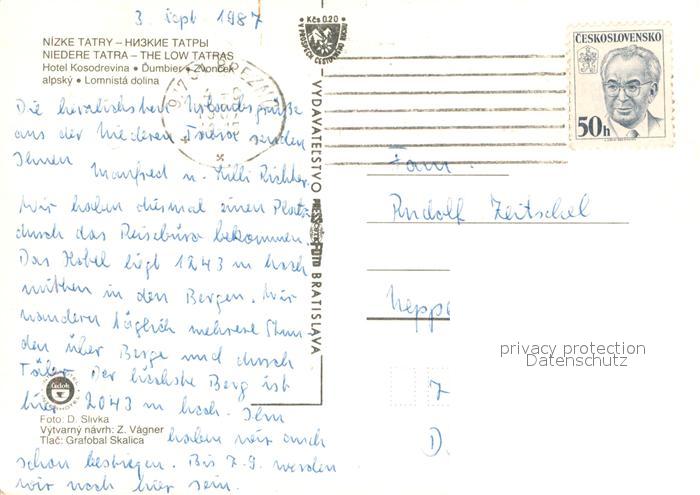 3. Sept 1987
NÍZKE TATRY – НИЗКИЕ ТАТРЫ
NIEDERE TATRA – THE LOW TATRAS
Hotel Kosodrevina • Ďumbier • Zvonček
alpský • Lomnistá dolina
Die herzlichsten Urlaubsgrüße
aus der Niederen Tatra senden
Ihnen Manfred u. Lilli Richter.
Wir haben diesmal einen Platz
durch das Reisebüro bekommen.
Das Hotel liegt 1243 m hoch
mitten in den Bergen. Wir
wandern täglich mehrere Stun-
den über Berge und durch
Täler. Der höchste Berg ist
hier 2043 m hoch. Ihn
haben wir auch
schon bestiegen. Bis 7.9. werden
wir noch hier sein.
Foto: D. Slivka
Výtvarný návrh: Z. Vágner
Tlač: Grafobal Skalica
čedok
Kčs 0.20
VYDAVATEĽSTVO
PRESSFOTO
BRATISLAVA
ČESKOSLOVENSKO
50h
Fam.
Rudolf Zeitschel
7
D.
privacy protection
Datenschutz